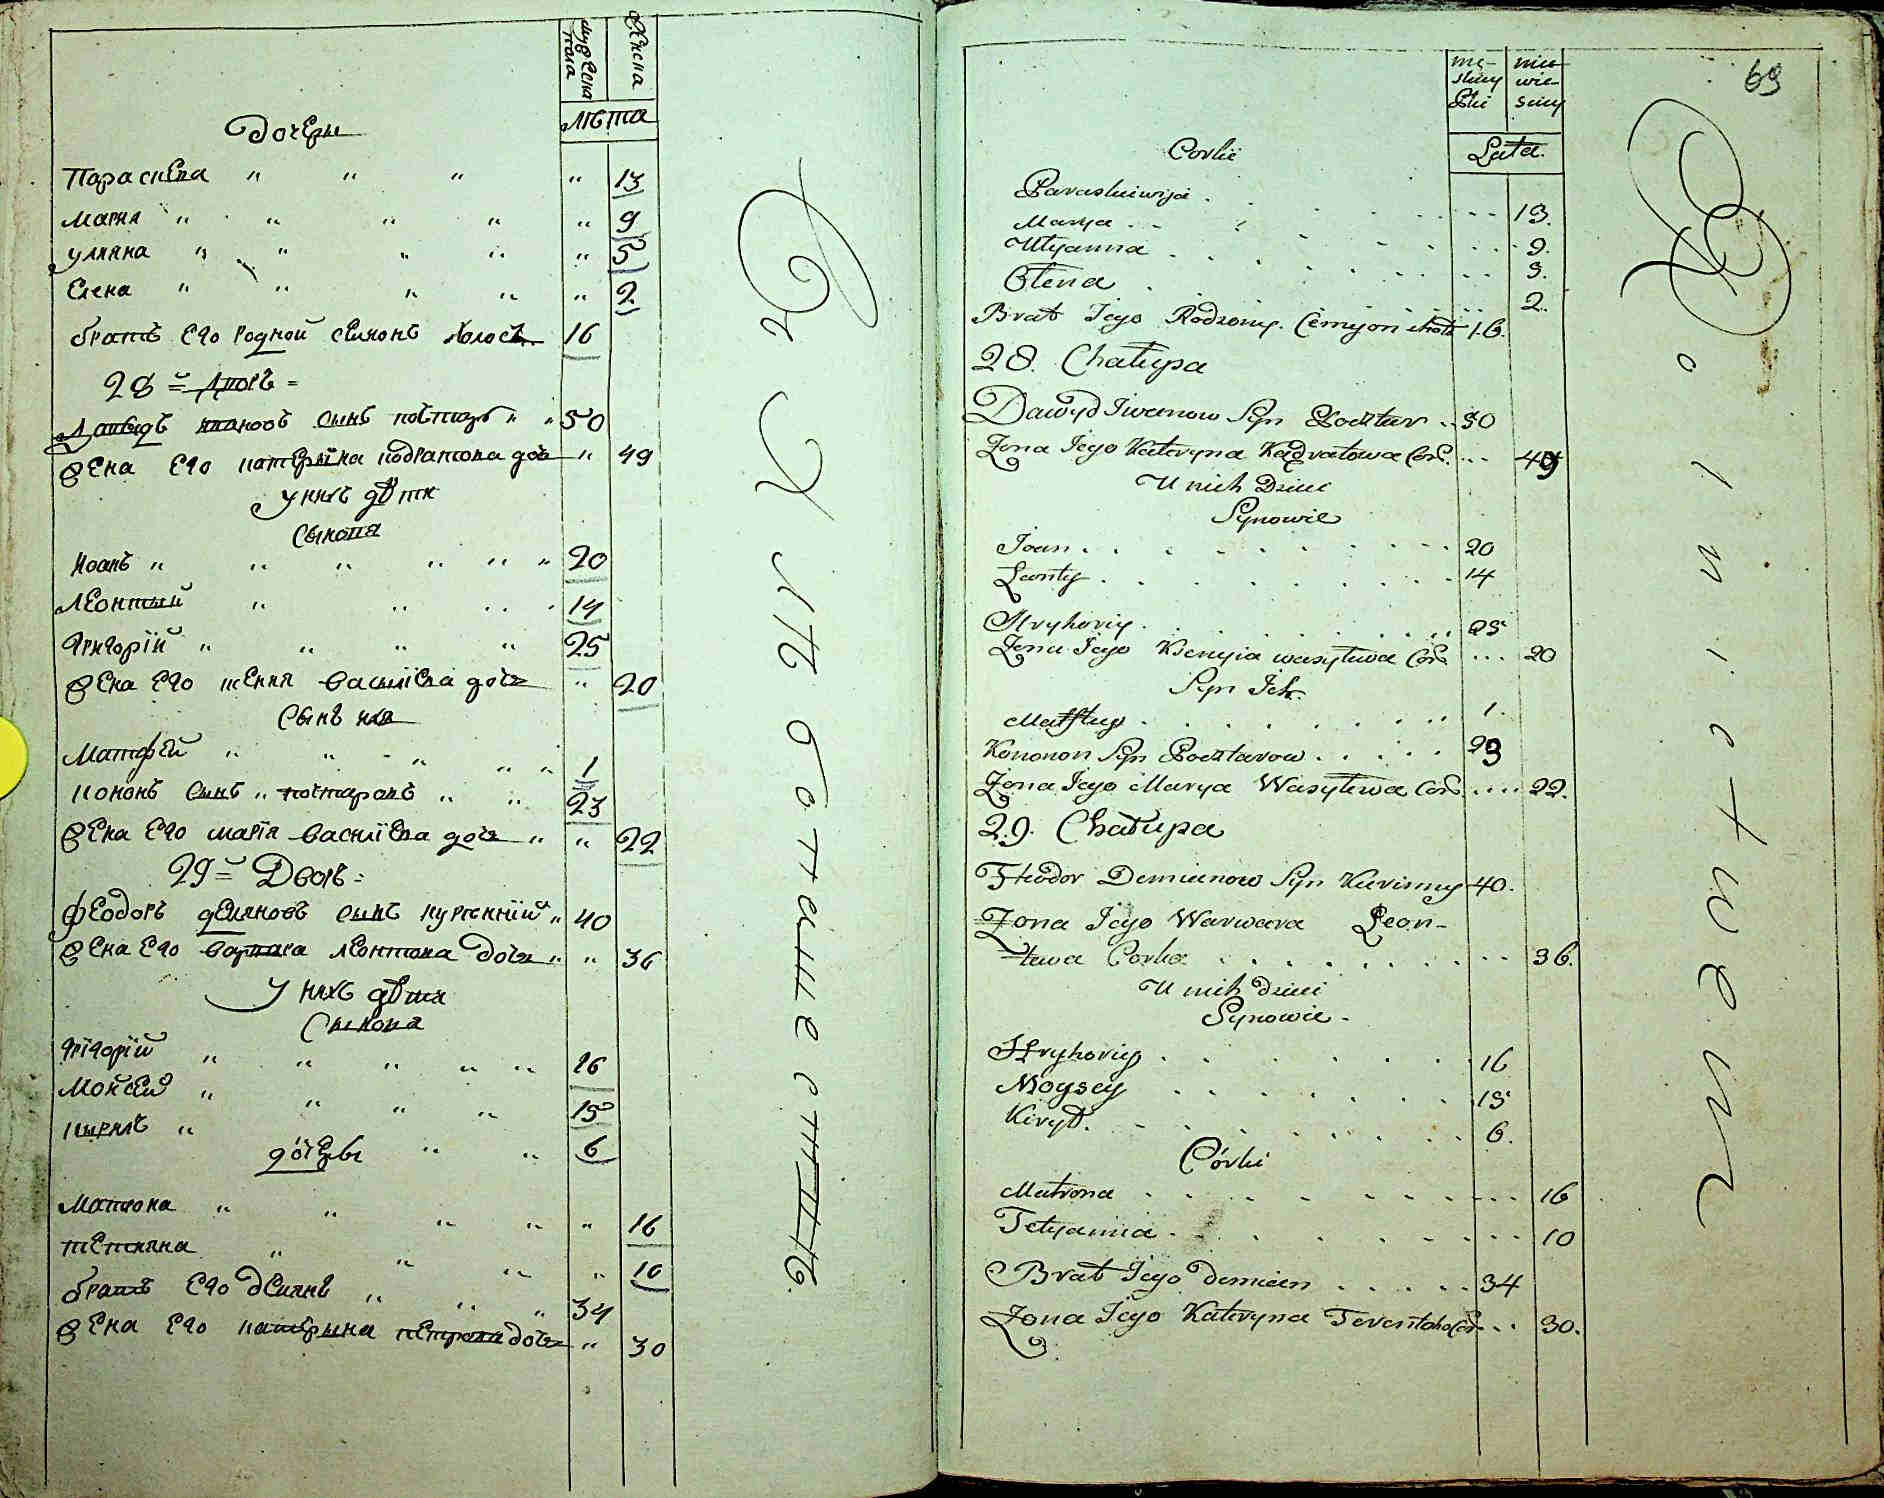 мужеска пола
женска
лѣта
Дочери
Параскева " " " " 13
Мария " " " " " 9
улияна " " " " " 5
Елена " " " " " 2
братъ его родной Симонъ холостъ 16
28й Дворъ
Давидъ ивановъ сынъ почтарь " " 50
жена его катерина кодратова дочь " 49
у нихъ дѣти
Сынови
иоанъ " " " " " " 20
Леонтий " " " " 14
Григорїй " " " " 25
жена его ксения василїева дочь " 20
Сынъ ихъ
Матфей " " " " " 1
кононъ сынъ " почтаровъ " " 23
жена его марїя василїева дочь " " 22
29й Дворъ
Феодоръ демяновъ сынъ куреннїй " 40
жена его варвара леонтова дочь " " 36
У нихъ дѣти
Сынови
Григорїй " " " " " 16
Мойсей " " " " 15
кирилъ " " " 6
дочери
Матрона " " " " " 16
тетияна " " " " 10
братъ его демянъ " " " 34
жена его катерина петрова дочь " 30
69
mę-
skiey
Płci
niewie-
sciey
Lata.
Corki
Paraskiewija . . . 13.
Marya . . . 9.
Ulyanna . . . 5.
Olena . . . 2.
Brat Jego Rodzony. Cemyon 16.
28. Chałupa
Dawyd Iwanow Syn Pocztar . . 50
Zona Jego Kateryna Kadratowa Cor. . . . 49
U nich Dzieci
Synowie
Joan . . . 20
Leonty . . . 14
Hryhoriy . . . 25
Zona Jego Ksenyia wasylewa Cor. . . . 20
Syn Ich.
Matftey . . . 1.
Kononon Syn Pocztarow . . . 23
Zona Jego Marya Wasylewa Cor. . . . 22.
29. Chałupa
Fteodor Demianow Syn Kurinny 40.
Zona Jego Warwara Leon-
tewa Corka . . . 36.
U nich dzieci
Synowie -
Hryhoriy . . . 16
Moysey . . . 15
Kiryl. . . . 6.
Córki
Matrona . . . 16
Tetyanna . . . 10
Brat Jego demian . . . 34
Zona Jego Kateryna Cor. . . 30.